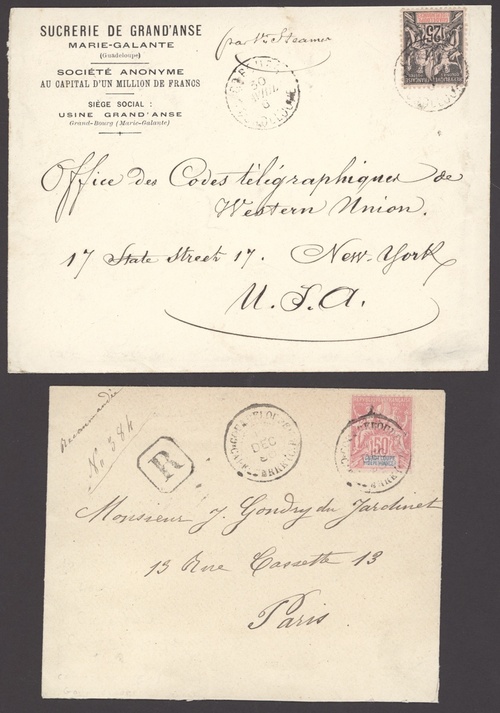 SUCRERIE DE GRAND'ANSE
MARIE-GALANTE
(Guadeloupe)
SOCIÉTÉ ANONYME
AU CAPITAL D'UN MILLION DE FRANCS
SIÈGE SOCIAL :
USINE GRAND'ANSE
Grand-Bourg (Marie-Galante)
par Steamer
25
Office des Codes télégraphiques de
Western Union.
17 State Street 17. New-York
U.S.A.
Recommandée
No 384
R
DEC
50
Monsieur J. Gondry du Jardinet
13 Rue Cassette 13
Paris